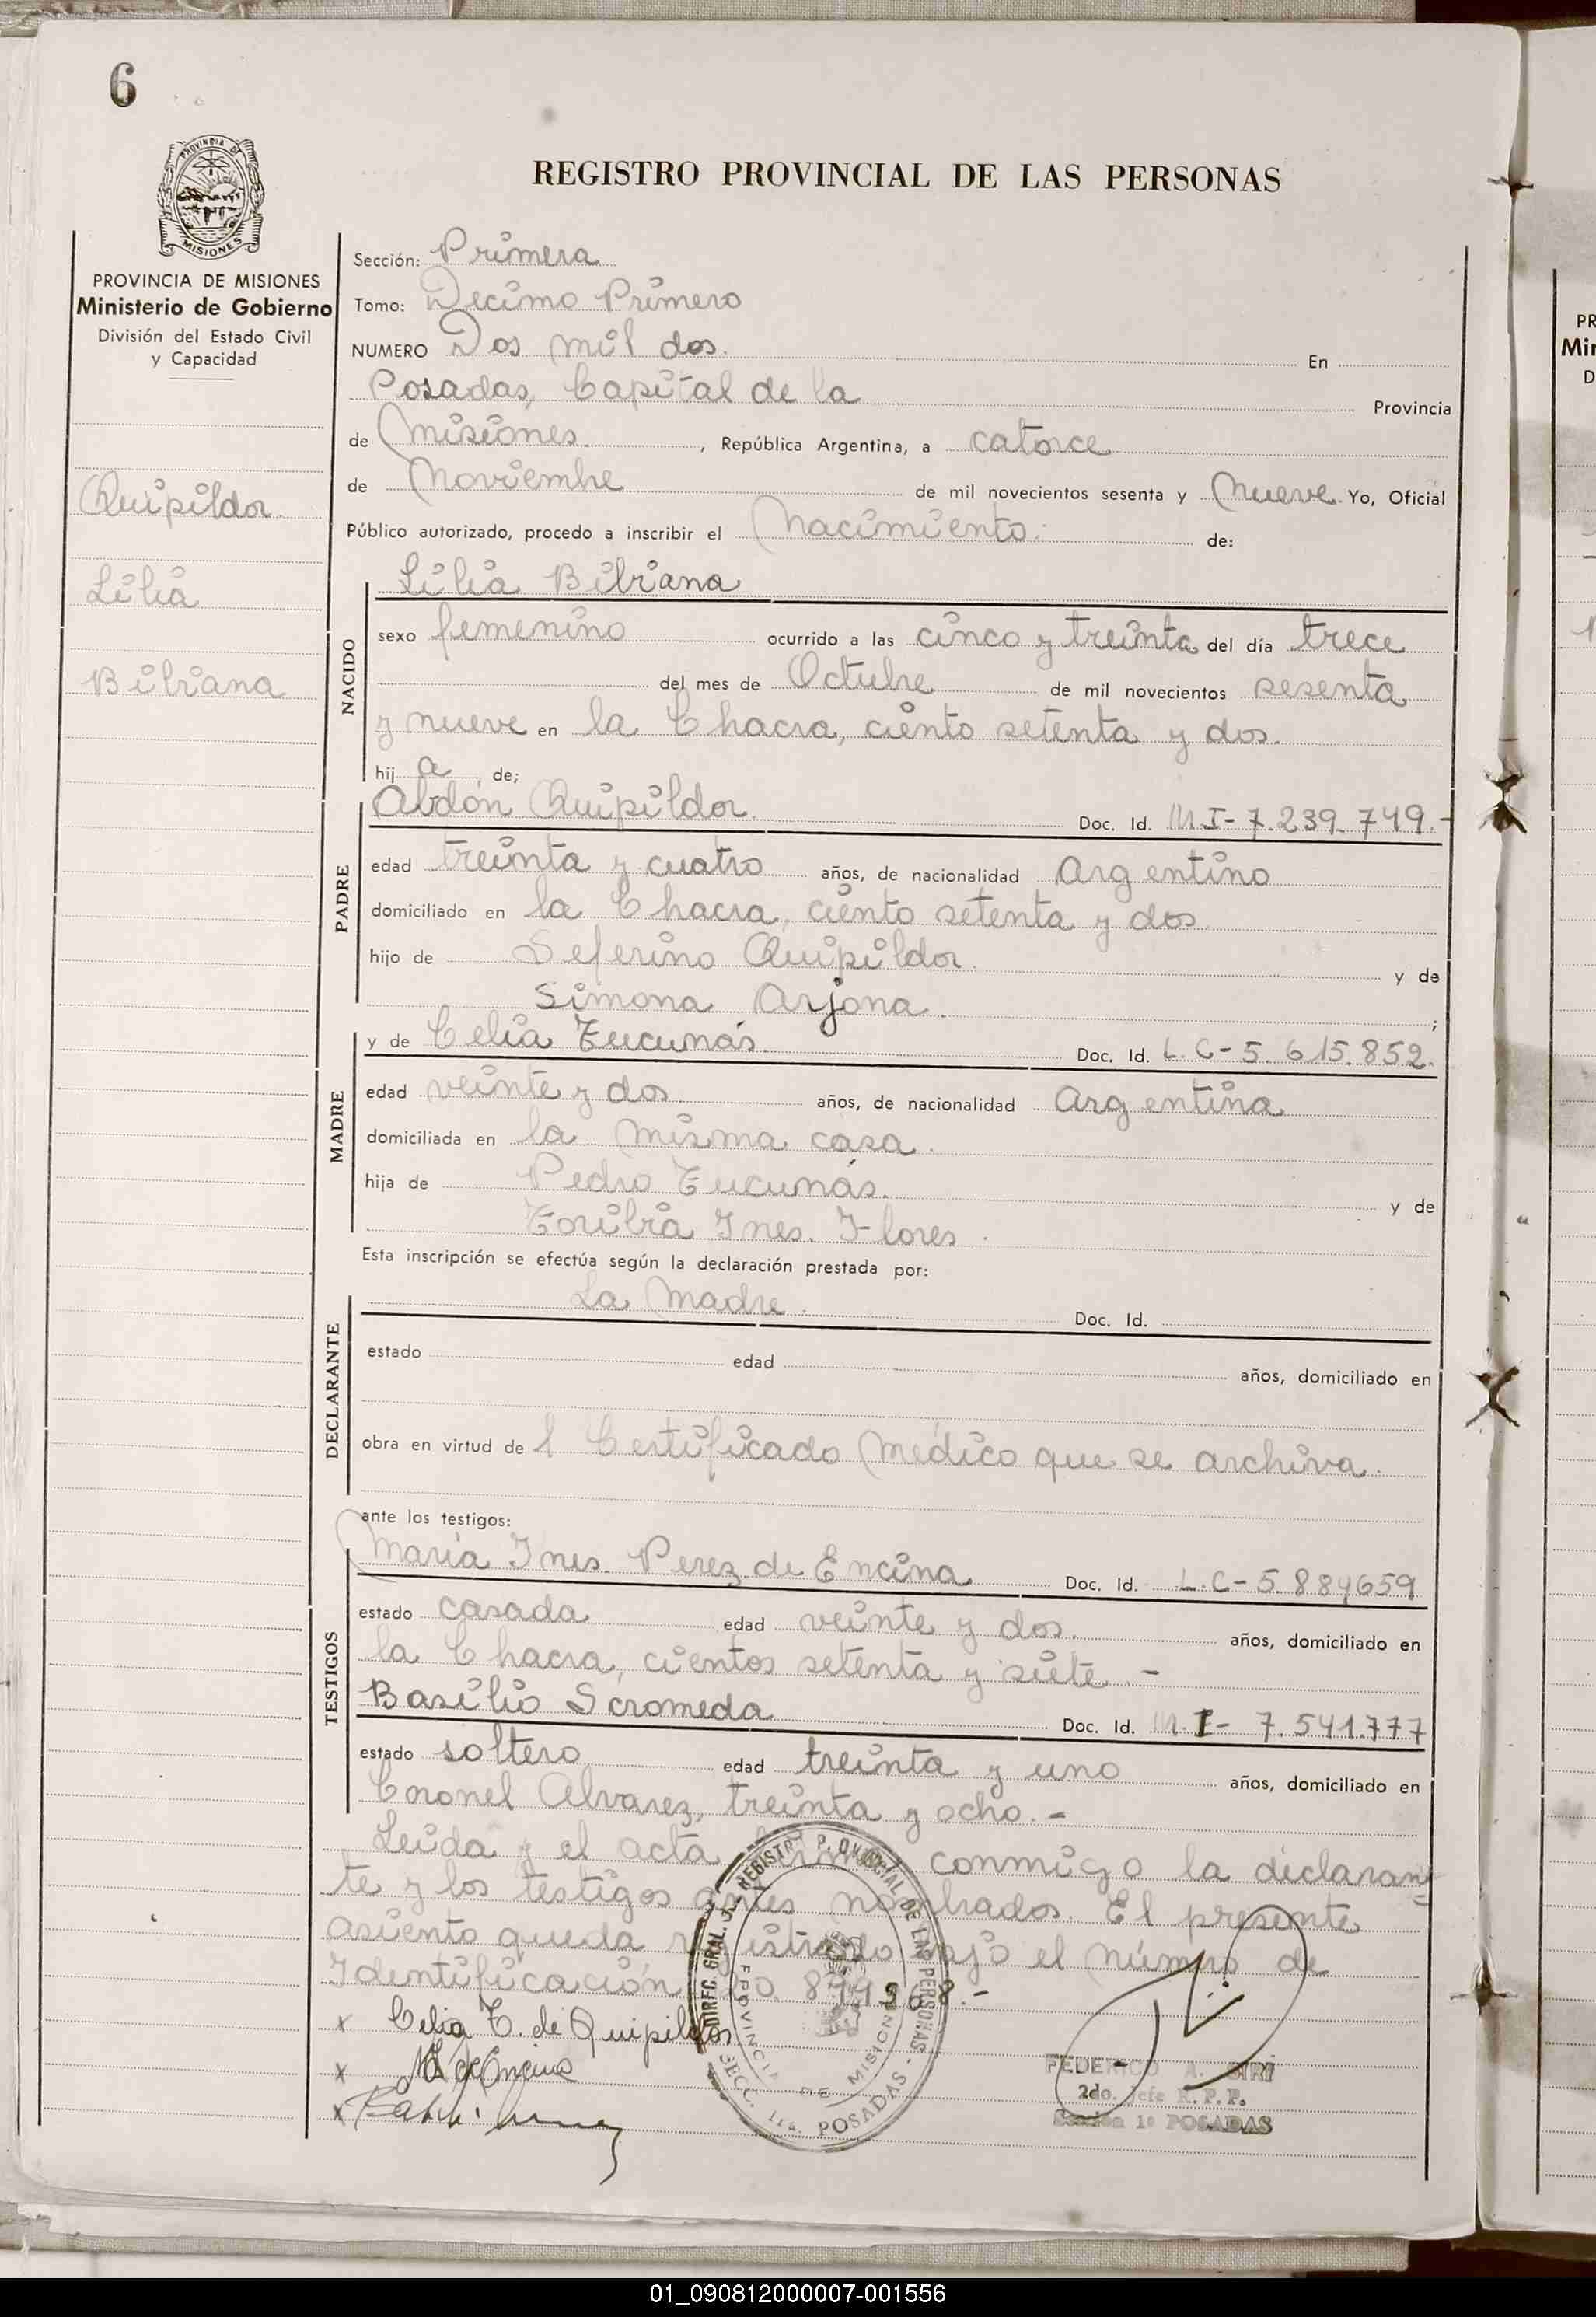 6
PROVINCIA DE
MISIONES
REGISTRO PROVINCIAL DE LAS PERSONAS
PROVINCIA DE MISIONES
Ministerio de Gobierno
División del Estado Civil
y Capacidad
Quipildor
Lilia
Bibiana
Sección: Primera
Tomo: Decimo Primero
NUMERO Dos mil dos. En
Posadas, Capital de la Provincia
de Misiones , República Argentina, a catorce
de Noviembre de mil novecientos sesenta y Nueve Yo, Oficial
Público autorizado, procedo a inscribir el Nacimiento. de:
Lilia Bibiana
NACIDO
sexo femenino ocurrido a las cinco y treinta del día trece
del mes de Octubre de mil novecientos sesenta
y nueve en la Chacra, ciento setenta y dos.
hij a de;
Abdón Quipildor. Doc. Id. M I- 7.239.749.-
PADRE
edad treinta y cuatro años, de nacionalidad Argentino
domiciliado en la Chacra, ciento setenta y dos
hijo de Seferino Quipildor. y de
Simona Arjona. ;
y de Celia Tucumás. Doc. Id. L. C- 5. 615.852.
MADRE
edad veinte y dos años, de nacionalidad Argentina
domiciliada en la misma casa.
hija de Pedro Tucumás. y de
Toribia Ines. Flores.
Esta inscripción se efectúa según la declaración prestada por:
La Madre. Doc. Id.
DECLARANTE
estado edad años, domiciliado en
obra en virtud de l Certificado Médico que se archiva.
ante los testigos:
Maria Ines. Perez de Encina Doc. Id. L.C- 5.884659
TESTIGOS
estado casada edad veinte y dos. años, domiciliado en
la Chacra, cientos setenta y siete.-
Basilio Scromeda Doc. Id. M.I- 7.541.777
estado soltero edad treinta y uno años, domiciliado en
Coronel Alvarez, treinta y ocho.-
Leida y el acta conmigo la declaran
te y los testigos antes nombrados. El presente
asiento queda registrado bajo el número de
Identificación 20.
x Celia T. de Quipildor
x de Encina
x
DIREC. GRAL. REGISTRO PROVINCIAL DE LAS PERSONAS
PROVINCIA DE MISIONES
SECC. 1ra. POSADAS
FEDERICO A. SIRI
2do. Jefe R. P. P.
Sección 1º POSADAS
PR
Min
D
01_090812000007-001556